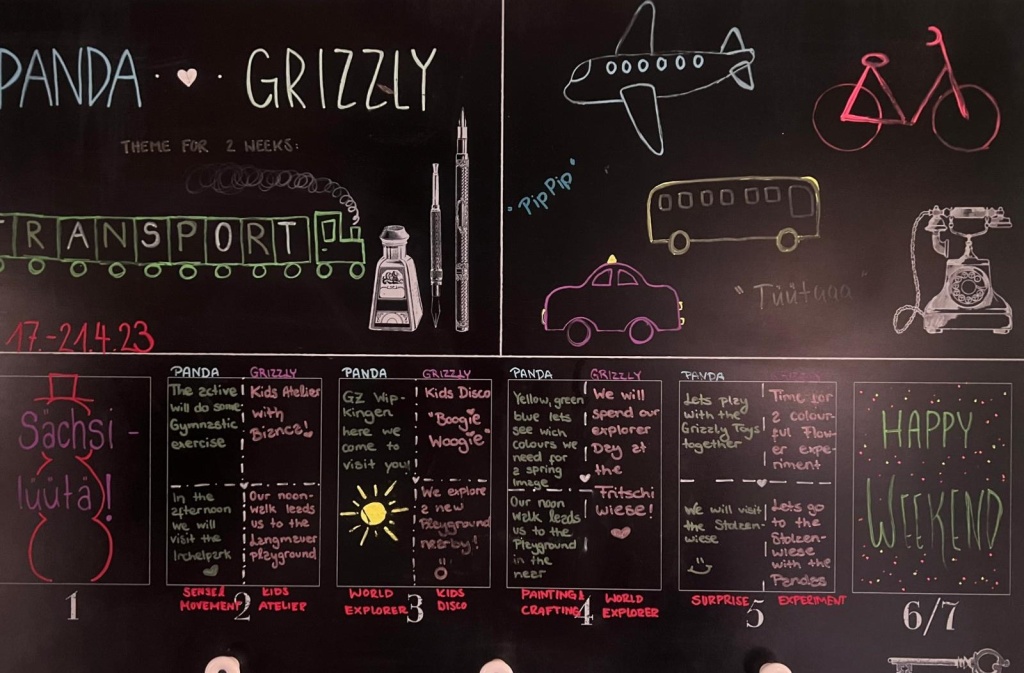 PANDA · ♥ · GRIZZLY
THEME FOR 2 WEEKS:
TRANSPORT
17.-21.4.23
"PipPip"
"Tüütaaa
Sächsi-
lüütä!
1
PANDA
The active
will do some
Gymnastic
exercise
In the
afternoon
we will
visit the
Irchelpark
GRIZZLY
Kids Atelier
with
Bianca!
Our noon-
walk leads
us to the
Langmauer
playground
SENSE&
MOVEMENT
2
KIDS
ATELIER
PANDA
GZ Wip-
kingen
here we
come to
visit you!
GRIZZLY
Kids Disco
"Boogie
Woogie"
We explore
a new
Playground
nearby!
WORLD
EXPLORER
3
KIDS
DISCO
PANDA
Yellow, green
blue lets
see wich
colours we
need for
a spring
image
Our noon
walk leads
us to the
Playground
in the
near
GRIZZLY
We will
spend our
explorer
Day at
the
Fritschi
wiese!
PAINTING&
CRAFTING
4
WORLD
EXPLORER
PANDA
Lets play
with the
Grizzly Toys
together
We will visit
the Stolzen-
wiese
GRIZZLY
Time for
a colour-
ful Flow-
er expe-
riment
Lets go
to the
Stolzen-
wiese
with the
Pandas
SURPRISE
5
EXPERIMENT
HAPPY
WEEKEND
6/7